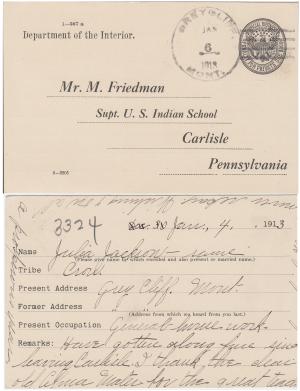 1-567 a
Department of the Interior.
GREYCLIFF,
JAN
6
1913
MONT.
Mr. M. Friedman
Supt. U. S. Indian School
Carlisle
Pennsylvania
3324
Jan, 4, 1913
Name Julia Jackson - same
(Please give name by which enrolled and also present or married name.)
Tribe Crow
Present Address Grey Cliff. Mont
Former Address
(Address from which we heard from you last.)
Present Occupation General house work.
Remarks: Have gotten along fine since
leaving Carlisle. I thank the dear
old Alma Mater for the great